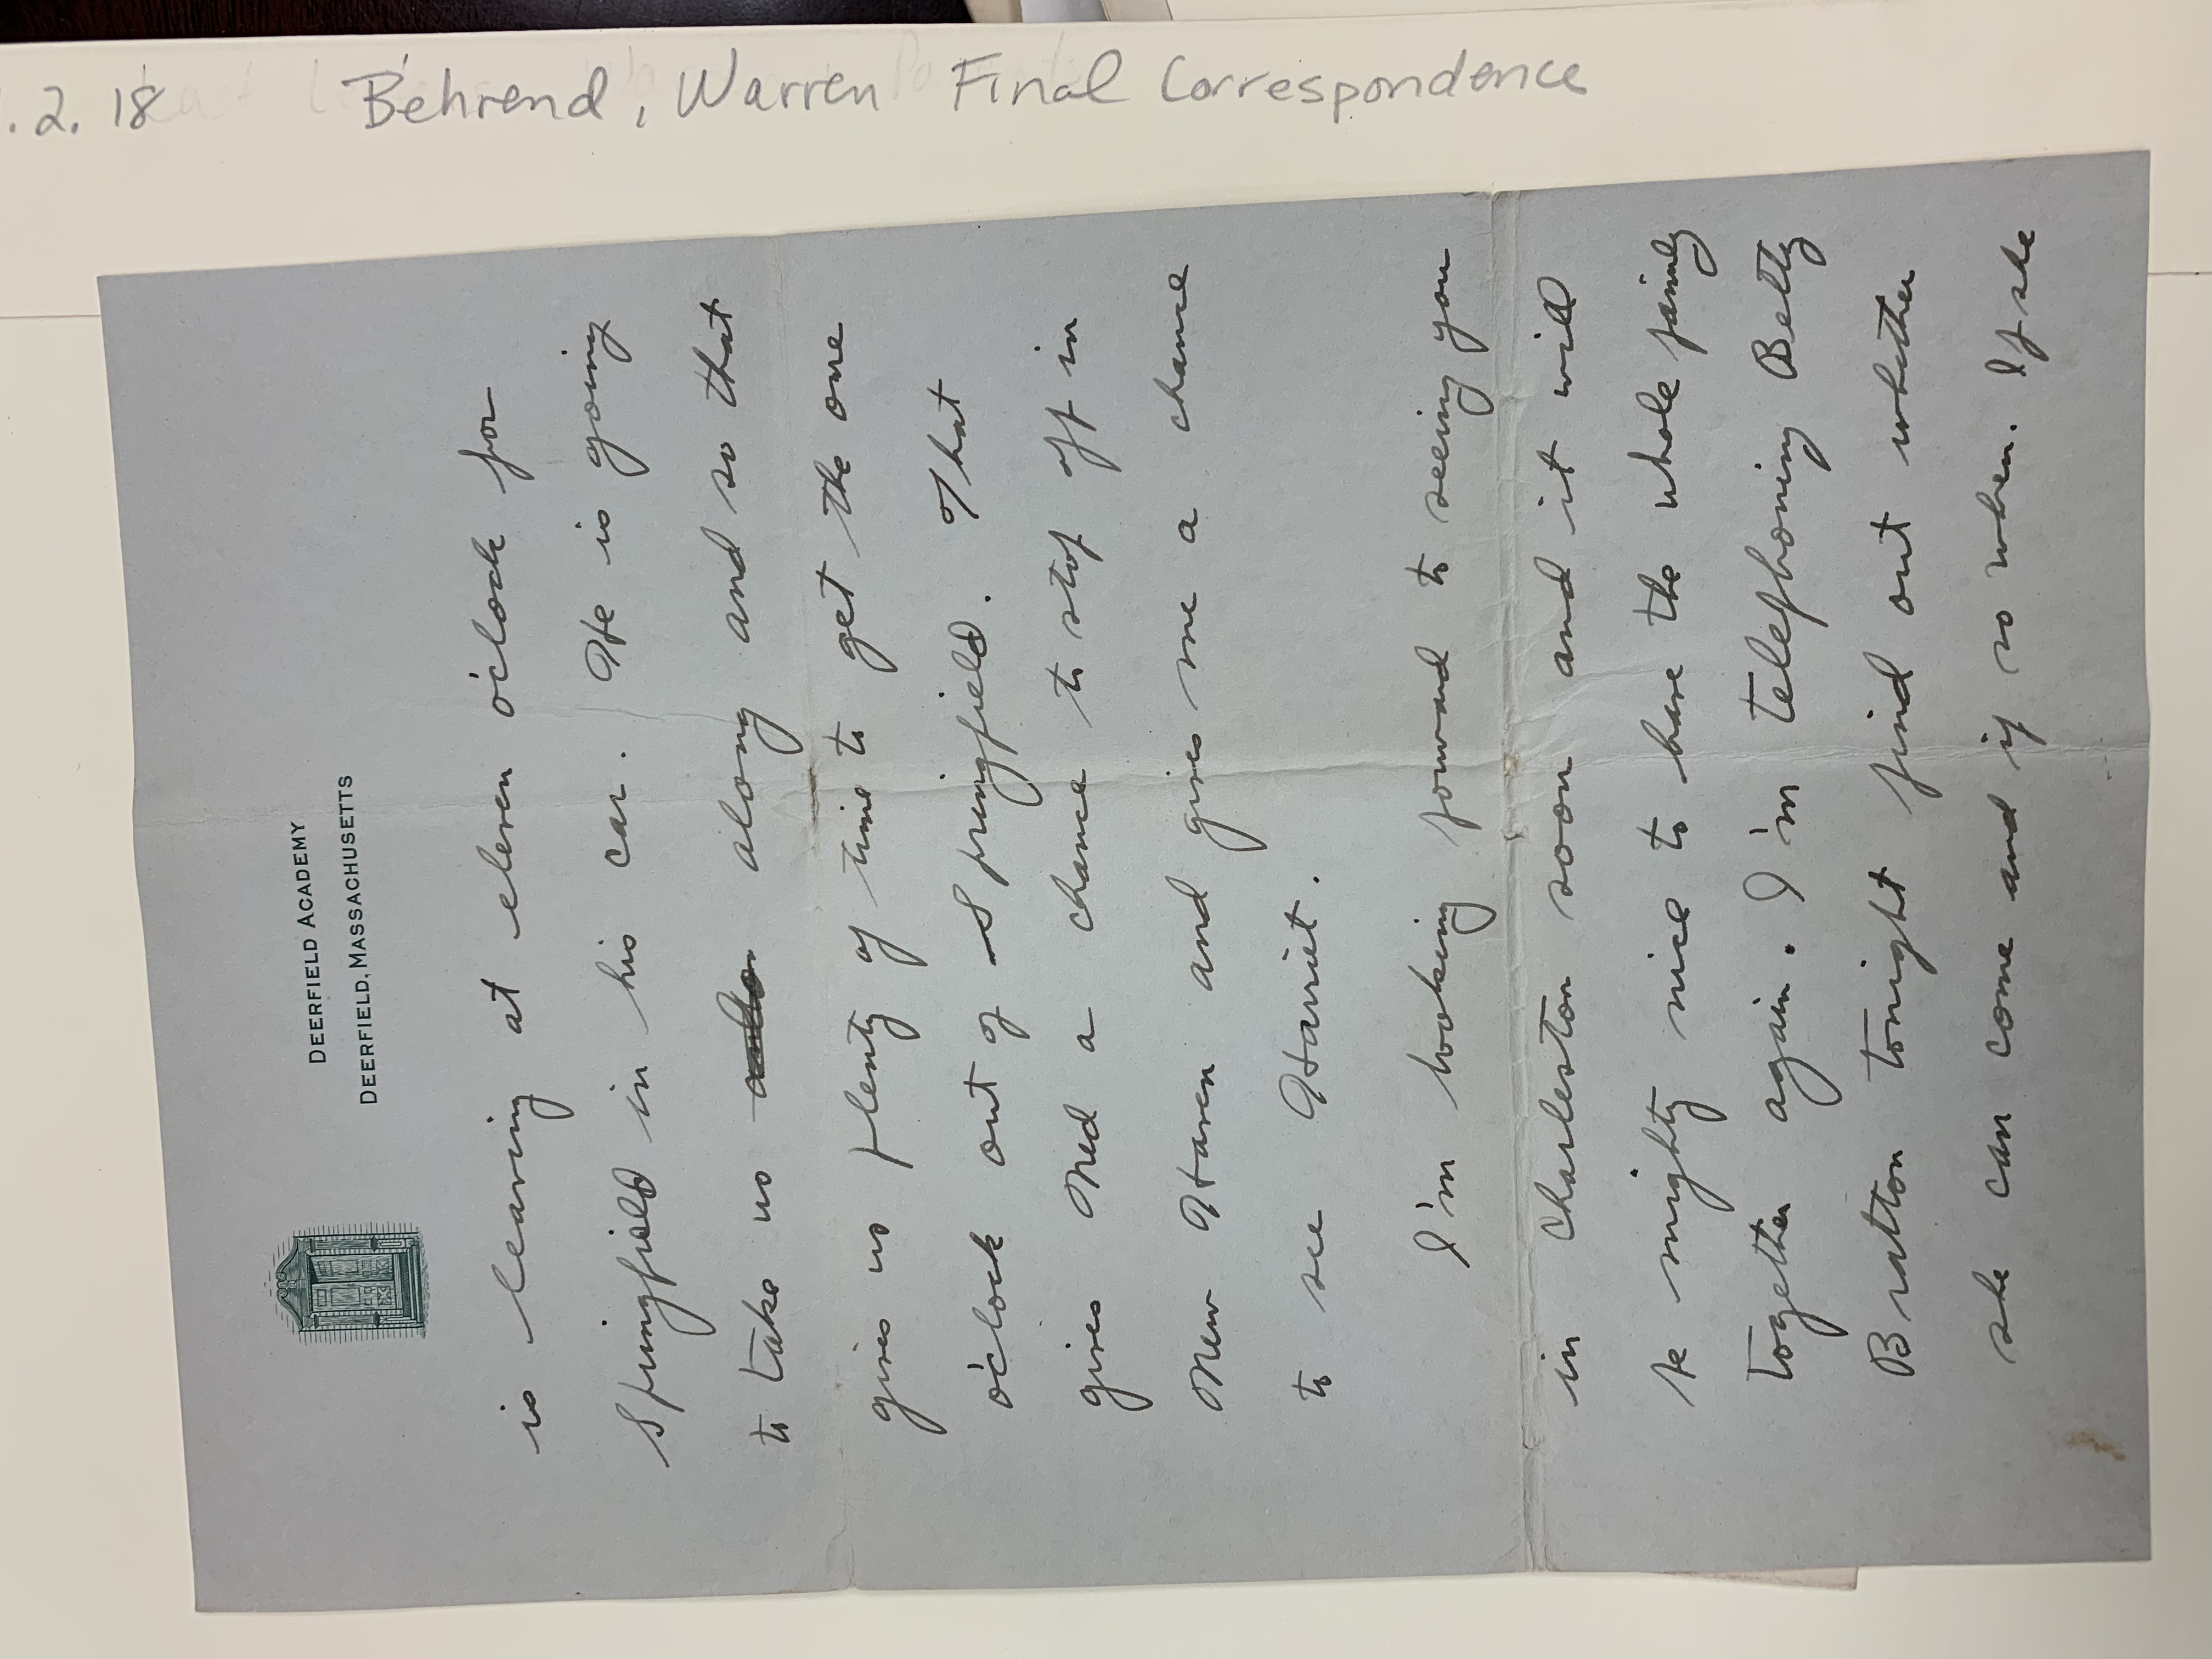 DEERFIELD ACADEMY
DEERFIELD, MASSACHUSETTS
is leaving at eleven o'clock for
Springfield in his car. He is going
to take us along and so that
gives us plenty of time to get the one
o'clock out of Springfield. That
gives Ned a chance to stop off in
New Haven and gives me a chance
to see Harriet.
I'm looking forward to seeing you
in Charleston soon and it will
be mighty nice to have the whole family
together again. I'm telephoning Betty
Bratton tonight find out whether
she can come and if so when. If she
.2.18 Behrend, Warren Final Correspondence